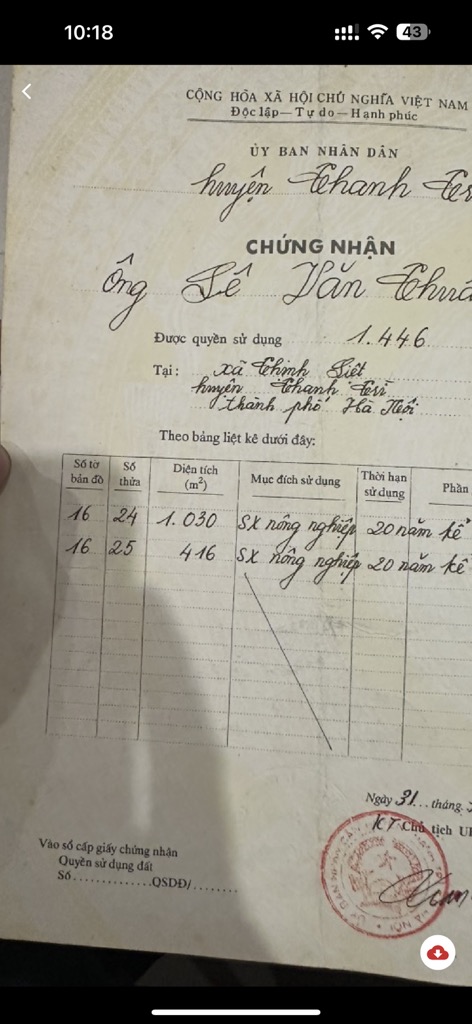 10:18
43
CỘNG HÒA XÃ HỘI CHỦ NGHĨA VIỆT NAM
Độc lập — Tự do — Hạnh phúc
ỦY BAN NHÂN DÂN
huyện Thanh Trì
CHỨNG NHẬN
Ông Lê Văn
Được quyền sử dụng 1.446
Tại: xã Thịnh Liệt
huyện Thanh Trì
thành phố Hà Nội
Theo bảng liệt kê dưới đây:
Số tờ bản đồ Số thửa Diện tích (m²) Mục đích sử dụng Thời hạn sử dụng Phần
16 24 1.030 SX nông nghiệp 20 năm kể
16 25 416 SX nông nghiệp 20 năm kể
Ngày 31 tháng
KT Chủ tịch
Vào sổ cấp giấy chứng nhận
Quyền sử dụng đất
Số..............QSDĐ/........